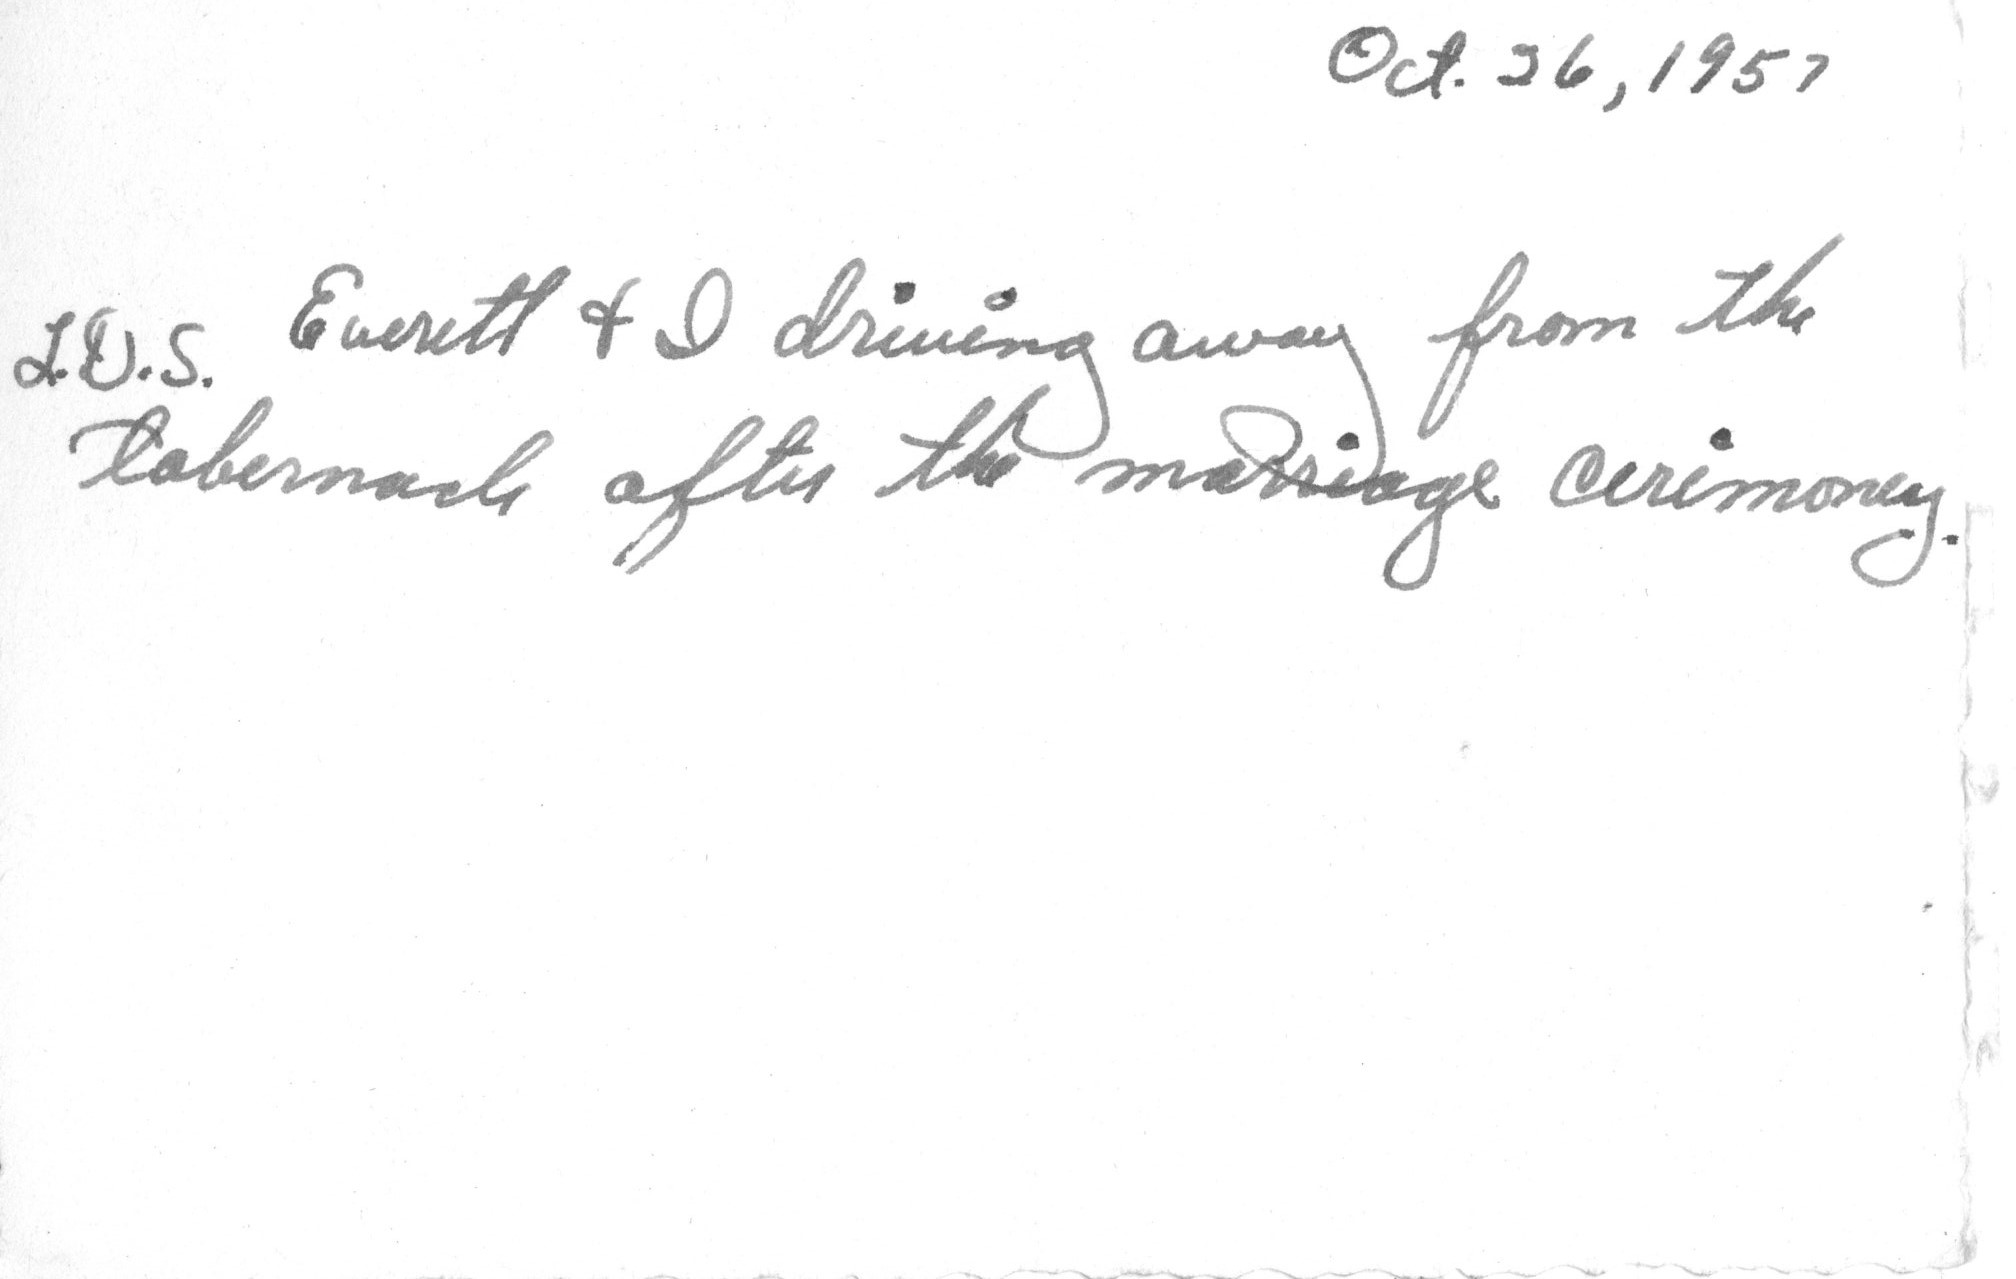 Oct. 26, 1957
Everett & I driving away from the
L.D.S. tabernacle after the marriage cerimoney.